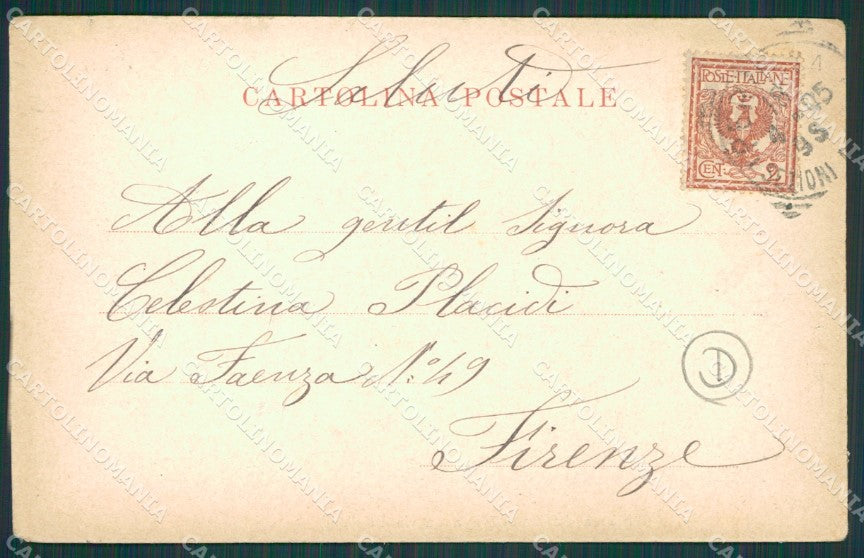 Saluti
CARTOLINA POSTALE
POSTE·ITALIANE
CEN. 2
Alla gentil Signora
Celestina Placidi
Via Faenza N.° 49
Firenze
CARTOLINOMANIA